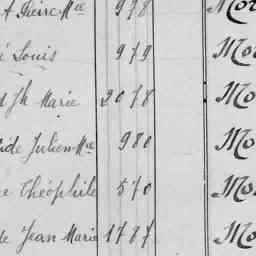 Pierre Mie 978 Mo
Louis 979 Mo
Jh Marie 2078 Mo
Julien Mie 980 Mo
Théophile 570 Mo
Jean Marie 1787 Mo